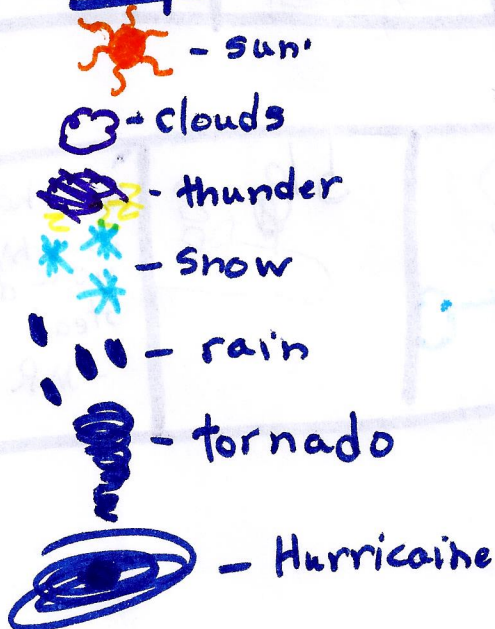 - sun
- clouds
- thunder
- snow
- rain
- tornado
- Hurricaine